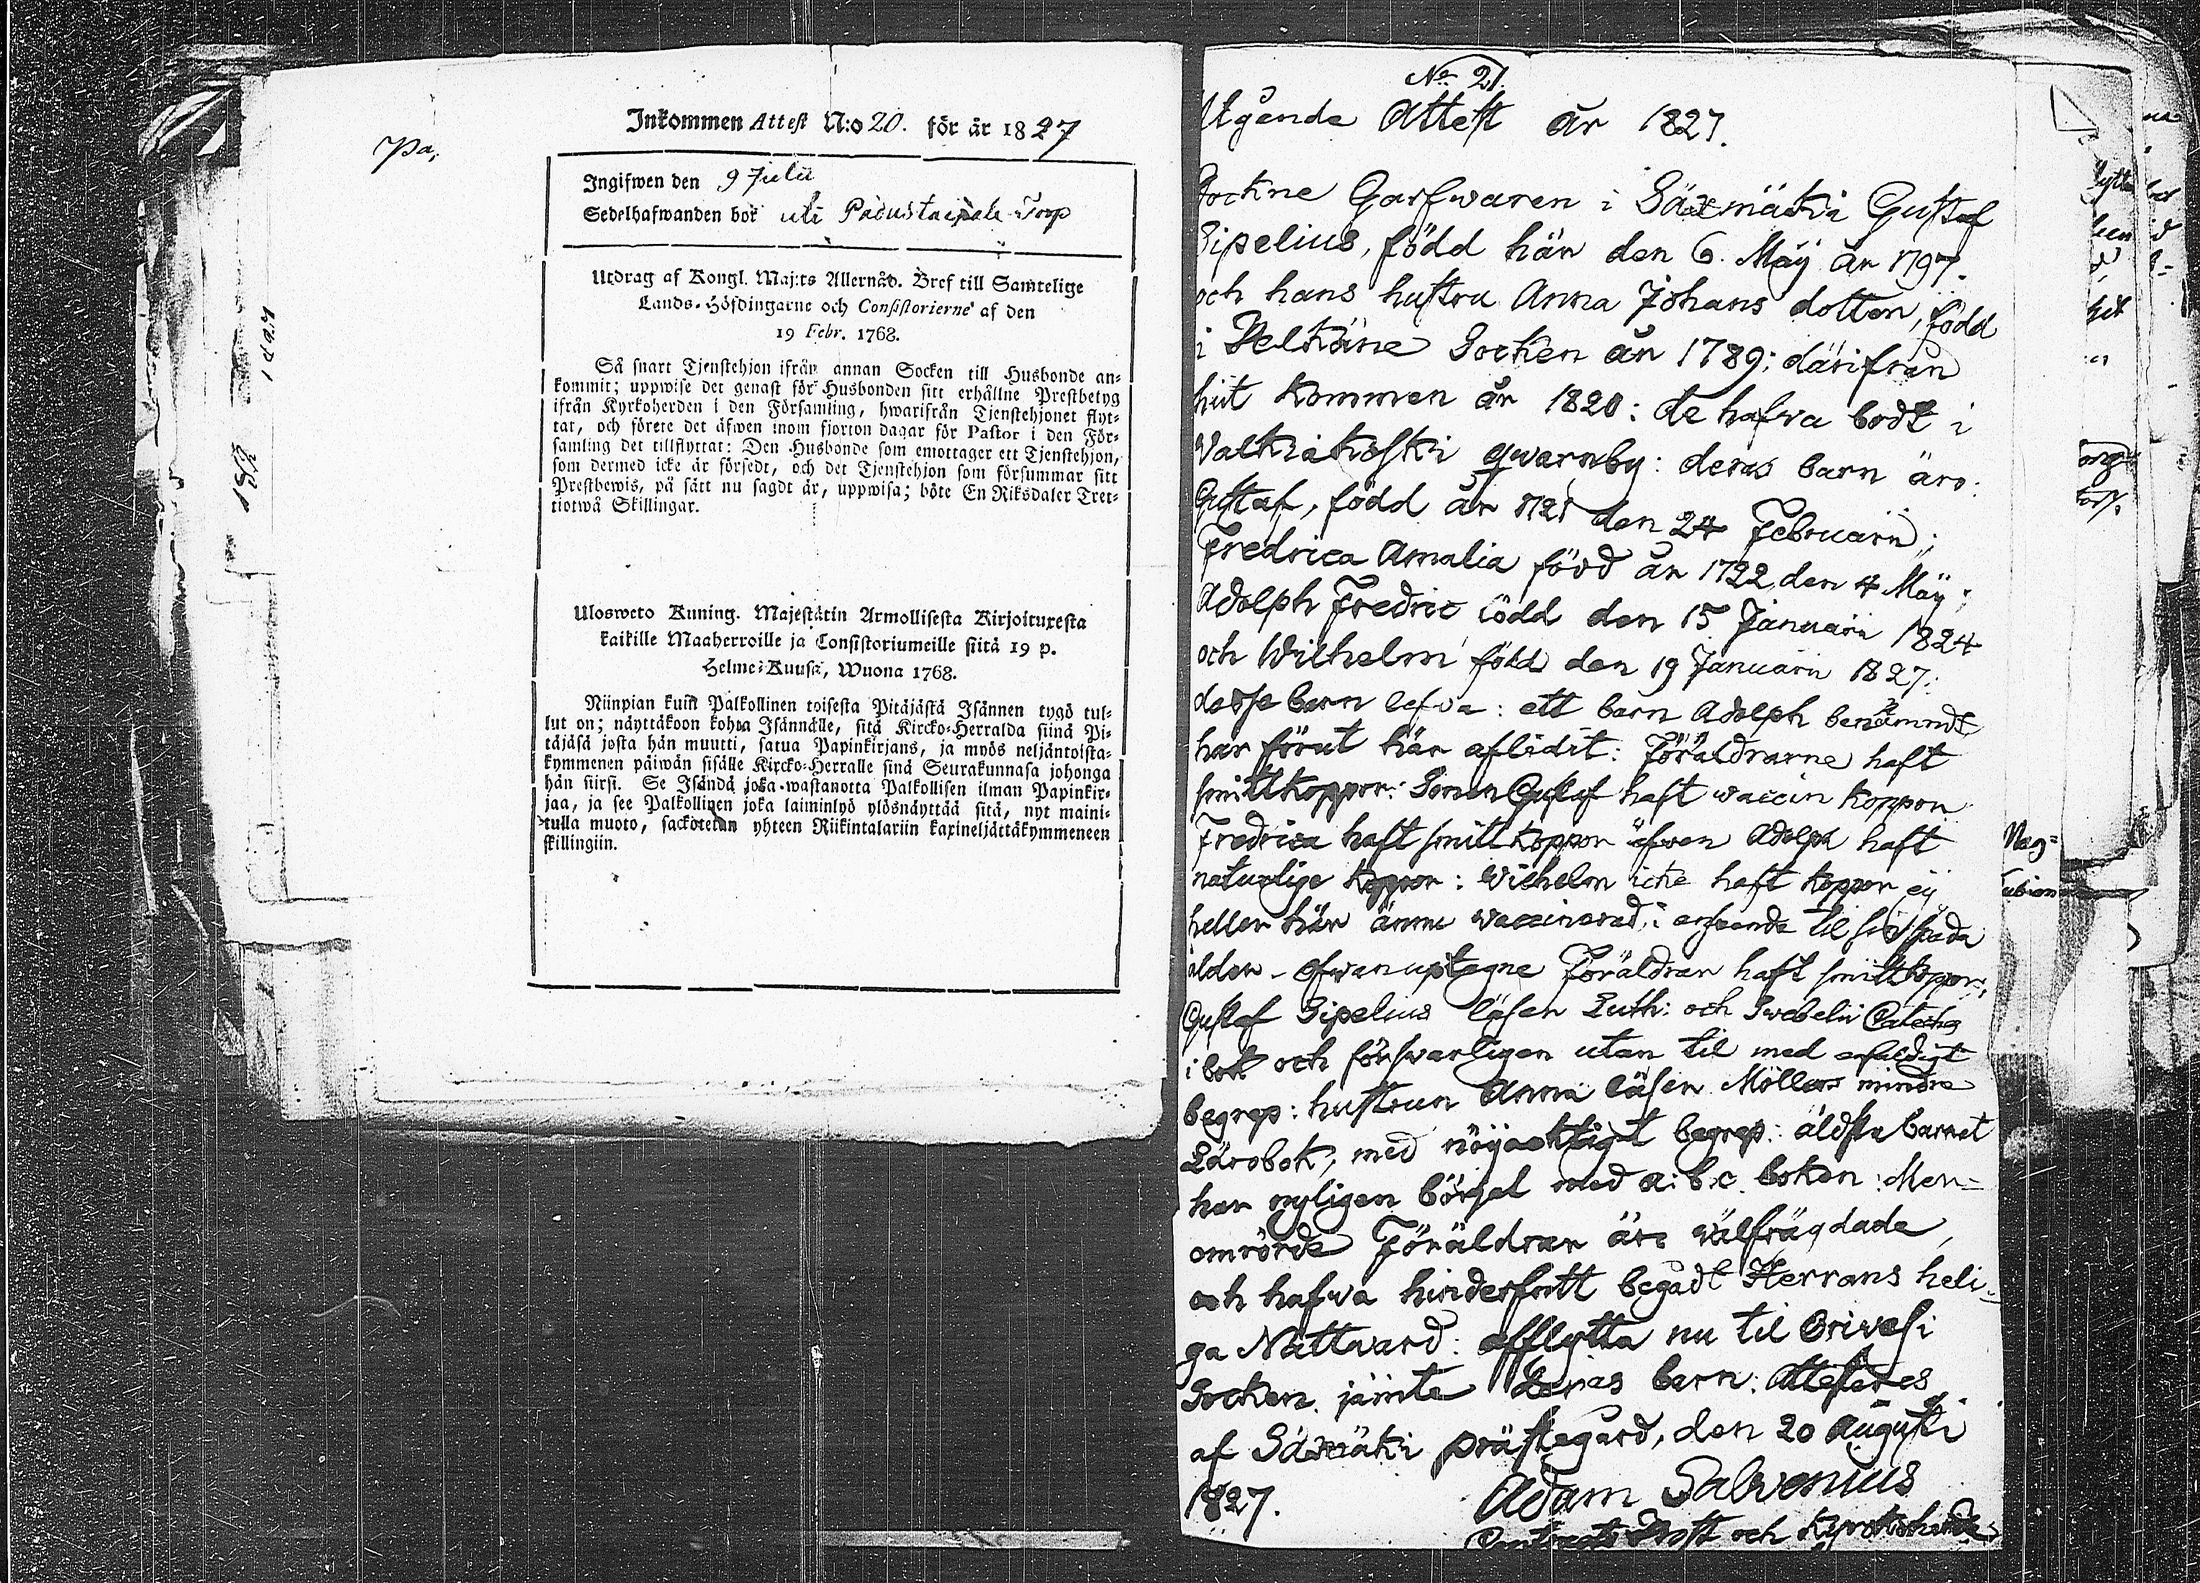 Inkommen Attest N:o 20. för år 1827
Ingifwen den 9 Julii
Sedelhafwanden bor uti Torp
Utdrag af Kongl. Maj:ts Allernåd. Bref till Samtelige
Lands-Höfdingarne och Consistorierne af den
19 Febr. 1768.
Så snart Tjenstehjon ifrån annan Socken till Husbonde an-
kommit; uppwise det genast för Husbonden sitt erhållne Prestbetyg
ifrån Kyrkoherden i den Församling, hwarifrån Tjenstehjonet flyt-
tat, och förete det äfwen inom fjorton dagar för Pastor i den För-
samling det tillflyttat: Den Husbonde som emottager ett Tjenstehjon,
som dermed icke är försedt, och det Tjenstehjon som försummar sitt
Prestbewis, på sätt nu sagdt är, uppwisa; böte En Riksdaler Tret-
tiotwå Skillingar.
Ulosweto Kuning. Majestätin Armollisesta Kirjoituxesta
kaikille Maaherroille ja Consistoriumeille siitä 19 p.
Helme-Kuusa, Wuona 1768.
Niinpian kuin Palkollinen toisesta Pitäjästä Isännen tygö tul-
lut on; näyttäkoon kohta Isännälle, sitä Kircko-Herralda siinä Pi-
täjäsä josta hän muutti, satua Papinkirjans, ja myös neljäntoista-
kymmenen päiwän sisälle Kircko-Herralle sinä Seurakunnasa johonga
hän siirsi. Se Isändä joka wastanotta Palkollisen ilman Papinkir-
jaa, ja see Palkollinen joka laiminlyö ylösnäyttää sitä, nyt maini-
tulla muoto, sackotetan yhteen Riikintalariin kaxineljättäkymmeneen
skillingiin.
No 21.
Utgående Attest år 1827.
Sockne Garfwaren i Säxmäki Gustaf
Sipelius, född här den 6. Maÿ år 1797.
och hans hustru Anna Johans dotter, född
i Pelkäne Socken år 1789; därifrån
hit kommen år 1820: de hafva bodt i
Walkiakoski qwarnby: deras barn äro:
Gustaf, född år 1721 den 24 Februarii;
Fredrica Amalia född år 1722 den 4 Maÿ;
Adolph Fredric född den 15 Januarii 1824
och Wilhelm född den 19 Januarii 1827:
desse barn lefva: ett barn Adolph benämndt
har förut här aflidit: Föräldrarne haft
smittkoppor: Sonen Gustaf haft vaccin koppor
Fredrica haft smittkoppor äfwen Adolph haft
naturlige koppor: Wilhelm icke haft koppor eÿ
heller här ännu vaccinerad, i anseende til sin späda
ålder - ofwanuptagne Föräldrar haft smittkoppor;
Gustaf Sipelius läser Luth: och Swebelii Cateches
i bok och försvarligen utan til med enfaldigt
begrep: hustrun Anna läser Möllers mindre
Lärobok, med nöÿaktigt begrep: äldsta barnet
har nyligen börjat med a:b.c. boken: Men-
omrörde Föräldrar äro wälfrägdade,
och hafwa hinderfritt begådt Herrans heli-
ga Nattward: afflytta nu til Orivesi
Socken jämte deras barn: Attesteras
af Säxmäki prästegård, den 20 Augusti
1827. Adam Salvenius
Contracts Prost och Kyrkoherde